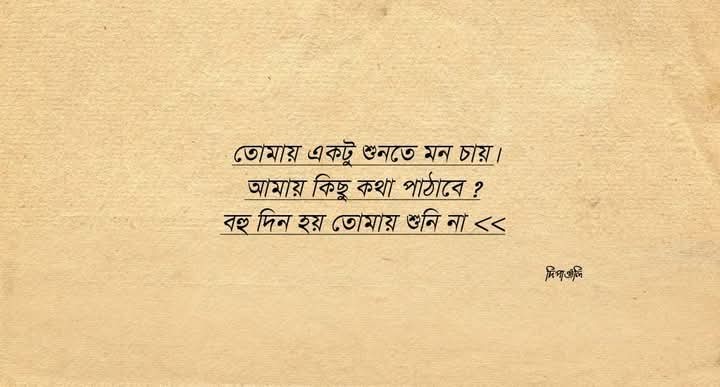 তোমায় একটু শুনতে মন চায়।
আমায় কিছু কথা পাঠাবে ?
বহু দিন হয় তোমায় শুনি না <<